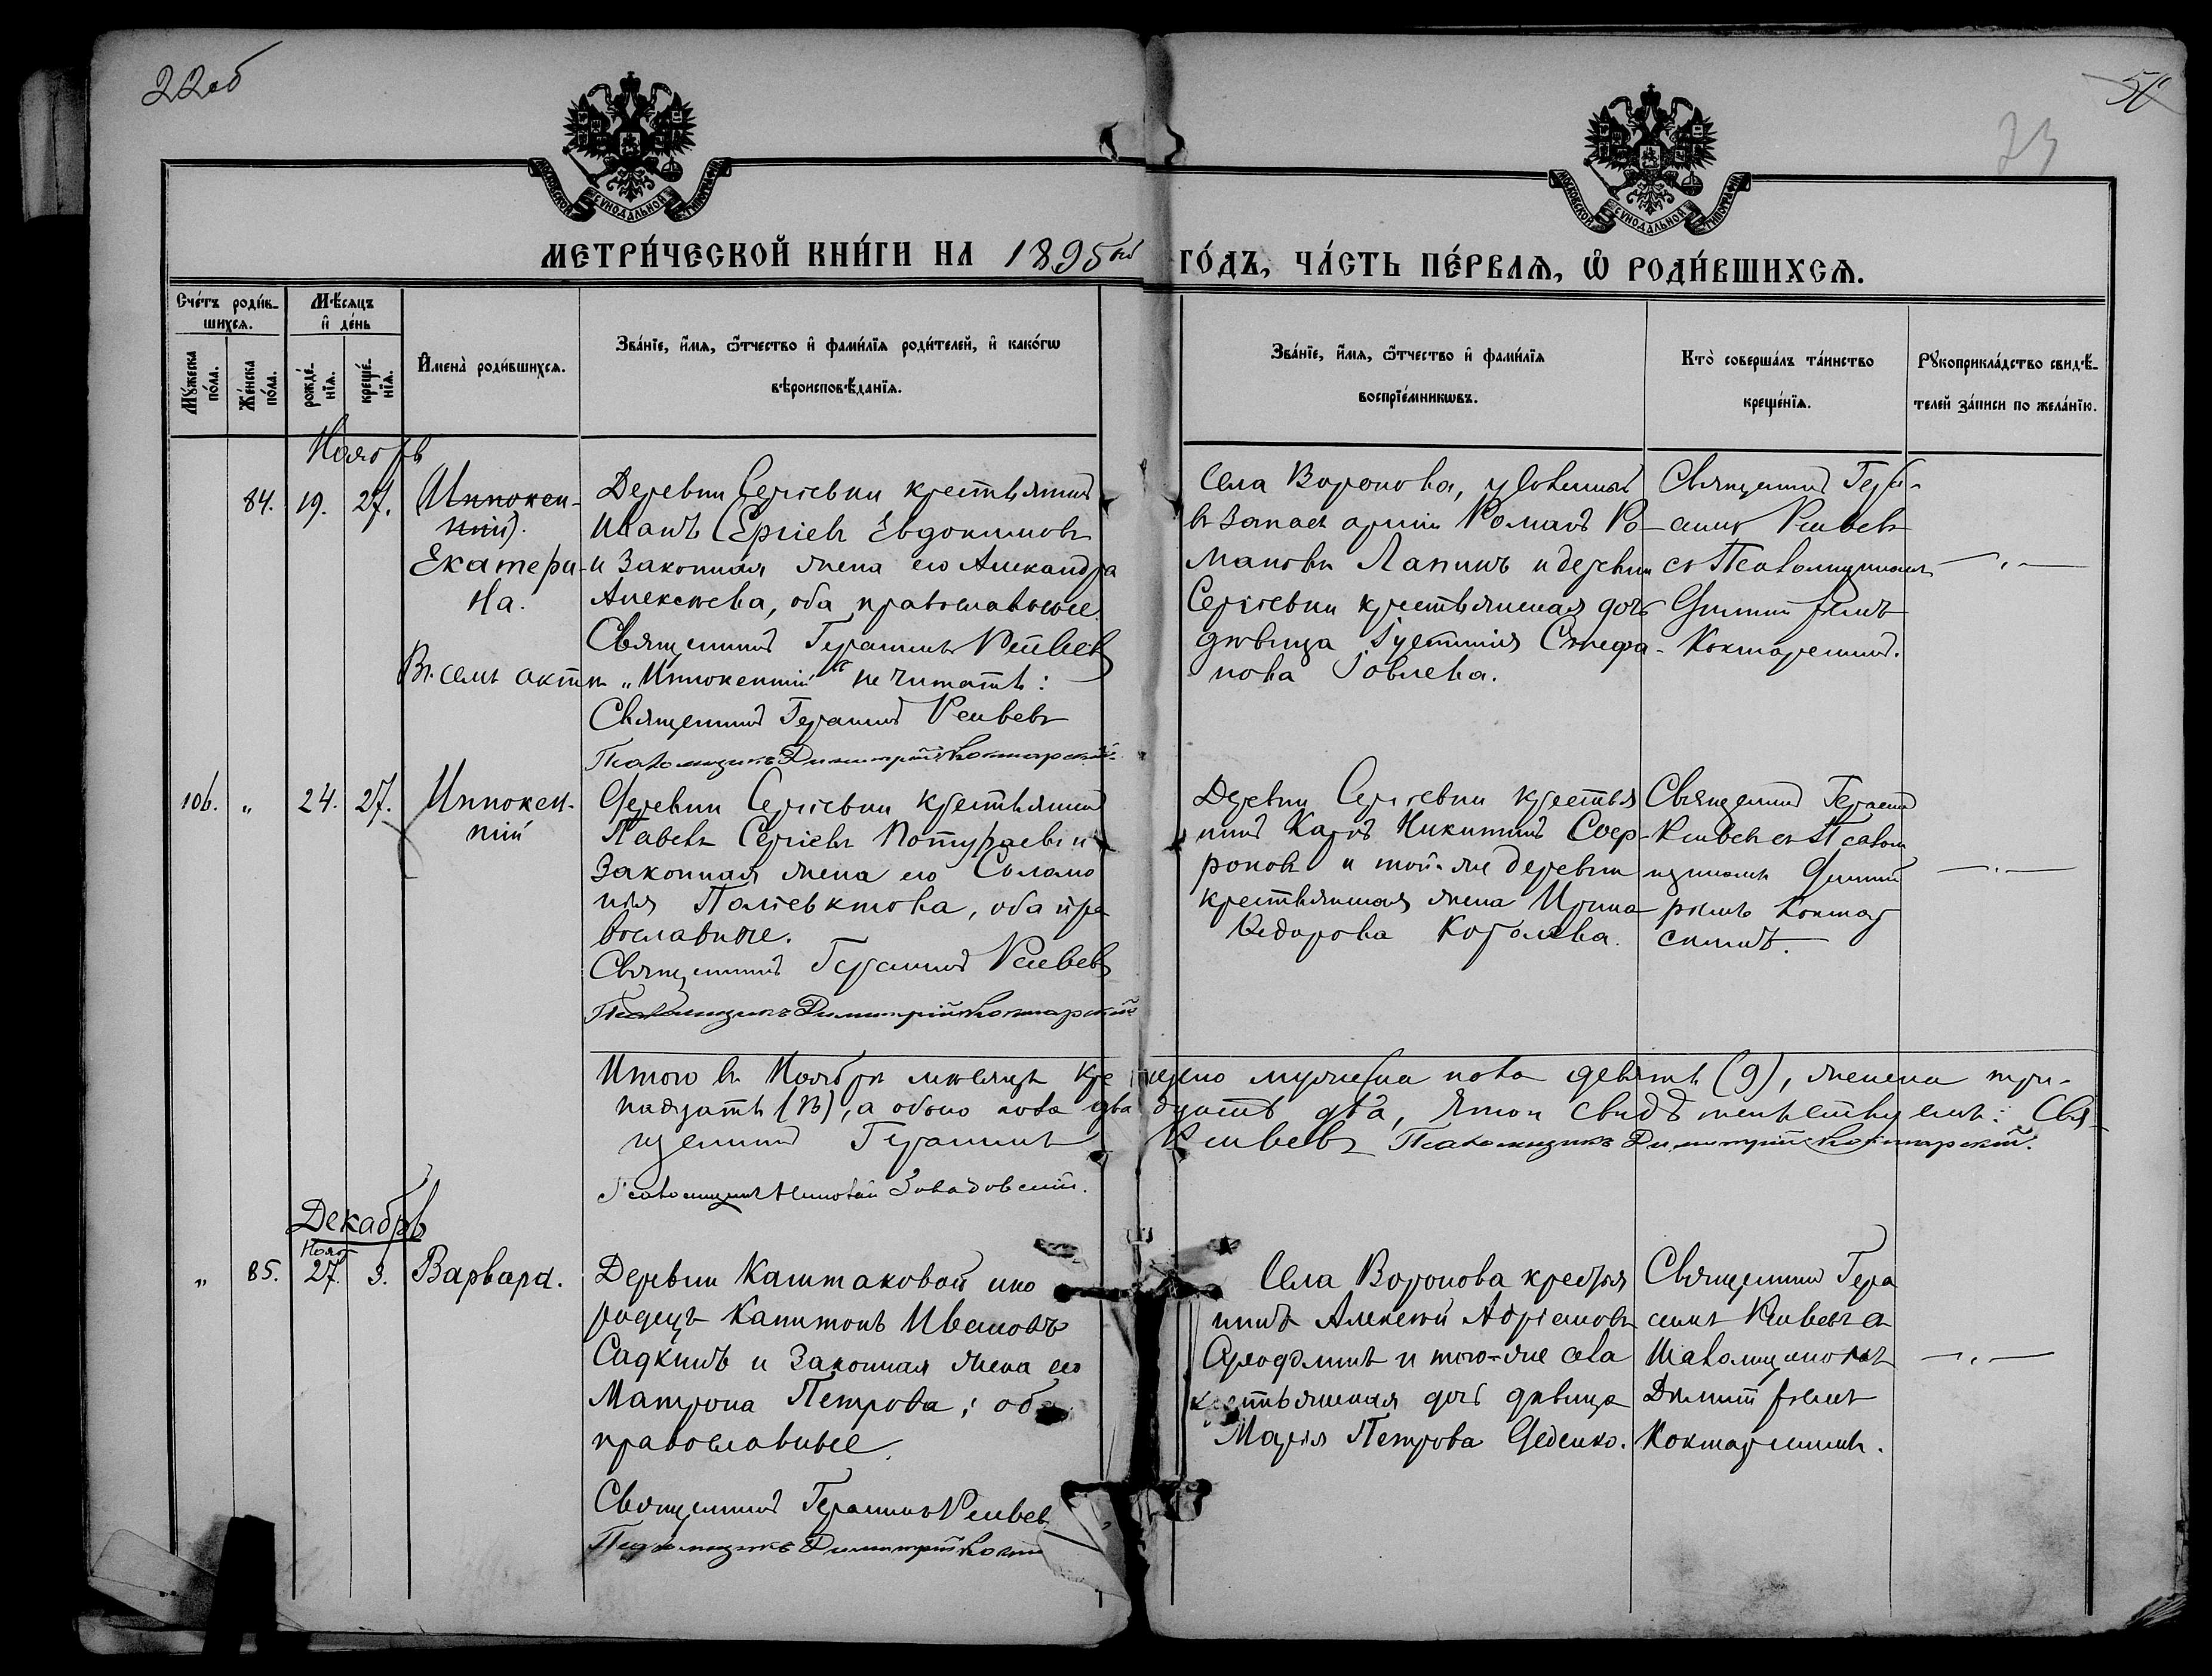 22об
50
23
МОСКОВСКОЙ СУНОДАЛЬНОЙ ТИПОГРАФІИ
МОСКОВСКОЙ СУНОДАЛЬНОЙ ТИПОГРАФІИ
МЕТРИ́ЧЕСКОЙ КНИ́ГИ НА 1895ый ГО́ДЪ, ЧА́СТЬ ПЕ́РВАѦ, Ѽ РОДИ́ВШИХСѦ.
Сче́тъ роди́в-
шихсѧ.
Мѣ́сѧцъ
и҆ де́нь
Мꙋ́жеска
по́ла.
Же́нска
по́ла.
рожде́-
нїѧ.
креще́-
нїѧ.
И҆мена̀ роди́вшихсѧ.
Зва́нїе, и҆́мѧ, ѻ҆́тчество и҆ фами́лїѧ роди́телей, и҆ како́гѡ
вѣроисповѣ́данїѧ.
Зва́нїе, и҆́мѧ, ѻ҆́тчество и҆ фами́лїѧ
воспрїе́мникѡвъ.
Кто̀ соверша́лъ та́инство
креще́нїѧ.
Рꙋкоприкла́дство свидѣ́-
телей за́писи по жела́нїю.
Ноябрь
84. 19. 27. Иннокен-
тій).
Екатери-
на.
Деревни Сергѣевки крестьянинъ
Иванъ Сергіевъ Евдокимовъ
и законная жена его Александра
Алексѣева, оба православные.
Священникъ Герасимъ Ренвевъ
Въ семъ актѣ „Иннокентій" не читать:
Священникъ Герасимъ Ренвевъ
Псаломщикъ Димитрій Коктарскій.
Села Воронова, уволенный
въ запасъ арміи Романъ Ро-
мановъ Лапинъ и деревни
Сергіевки крестьянская дочь
дѣвица Іустинія Стефа-
нова Іовлева.
Священникъ Гера-
симъ Ренвевъ
съ Псаломщикомъ
Димитріемъ
Коктарскимъ.
106. „ 24. 27. Иннокен-
тій
Деревни Сергіевки крестьянинъ
Павелъ Сергіевъ Потураевъ и
законная жена его Соломо
нія Поліевктова, оба пра
вославные.
Священникъ Герасимъ Ренвевъ
Псаломщикъ Димитрій Коктарскій
Деревни Сергіевки крестья
нинъ Карпъ Никитинъ Соф-
роновъ и той-же деревни
крестьянская жена Ирина
Ѳедорова Королева.
Священникъ Герасим
Ренвевъ съ Псалом
щикомъ Димит
ріемъ Коктар
скимъ.
Итого въ Ноябрѣ мѣсяцѣ крещено мужеска пола девять (9), женска три-
надцать (13), а обоего пола двадцать два, въ томъ свидѣтельствуемъ: Свя-
щенникъ Герасимъ Ренвевъ Псаломщикъ Димитрій Коктарскій.
Псаломщикъ Николай Завадовскій.
Декабрь
Нояб
„ 85. 27. 3. Варвара.
Деревни Каштаковой ино
родецъ Капитонъ Ивановъ
Садкинъ и законная жена его
Матрона Петрова; оба
православные.
Священникъ Герасимъ Ренвев
Псаломщикъ Димитрій Кокт
Села Воронова крестья
нинъ Алексѣй Адріановъ
и того-же села
крестьянская дочь дѣвица
Марія Петрова Деденко.
Священникъ Гера
симъ Ренвевъ съ
Псаломщикомъ
Димитріемъ
Коктарскимъ.